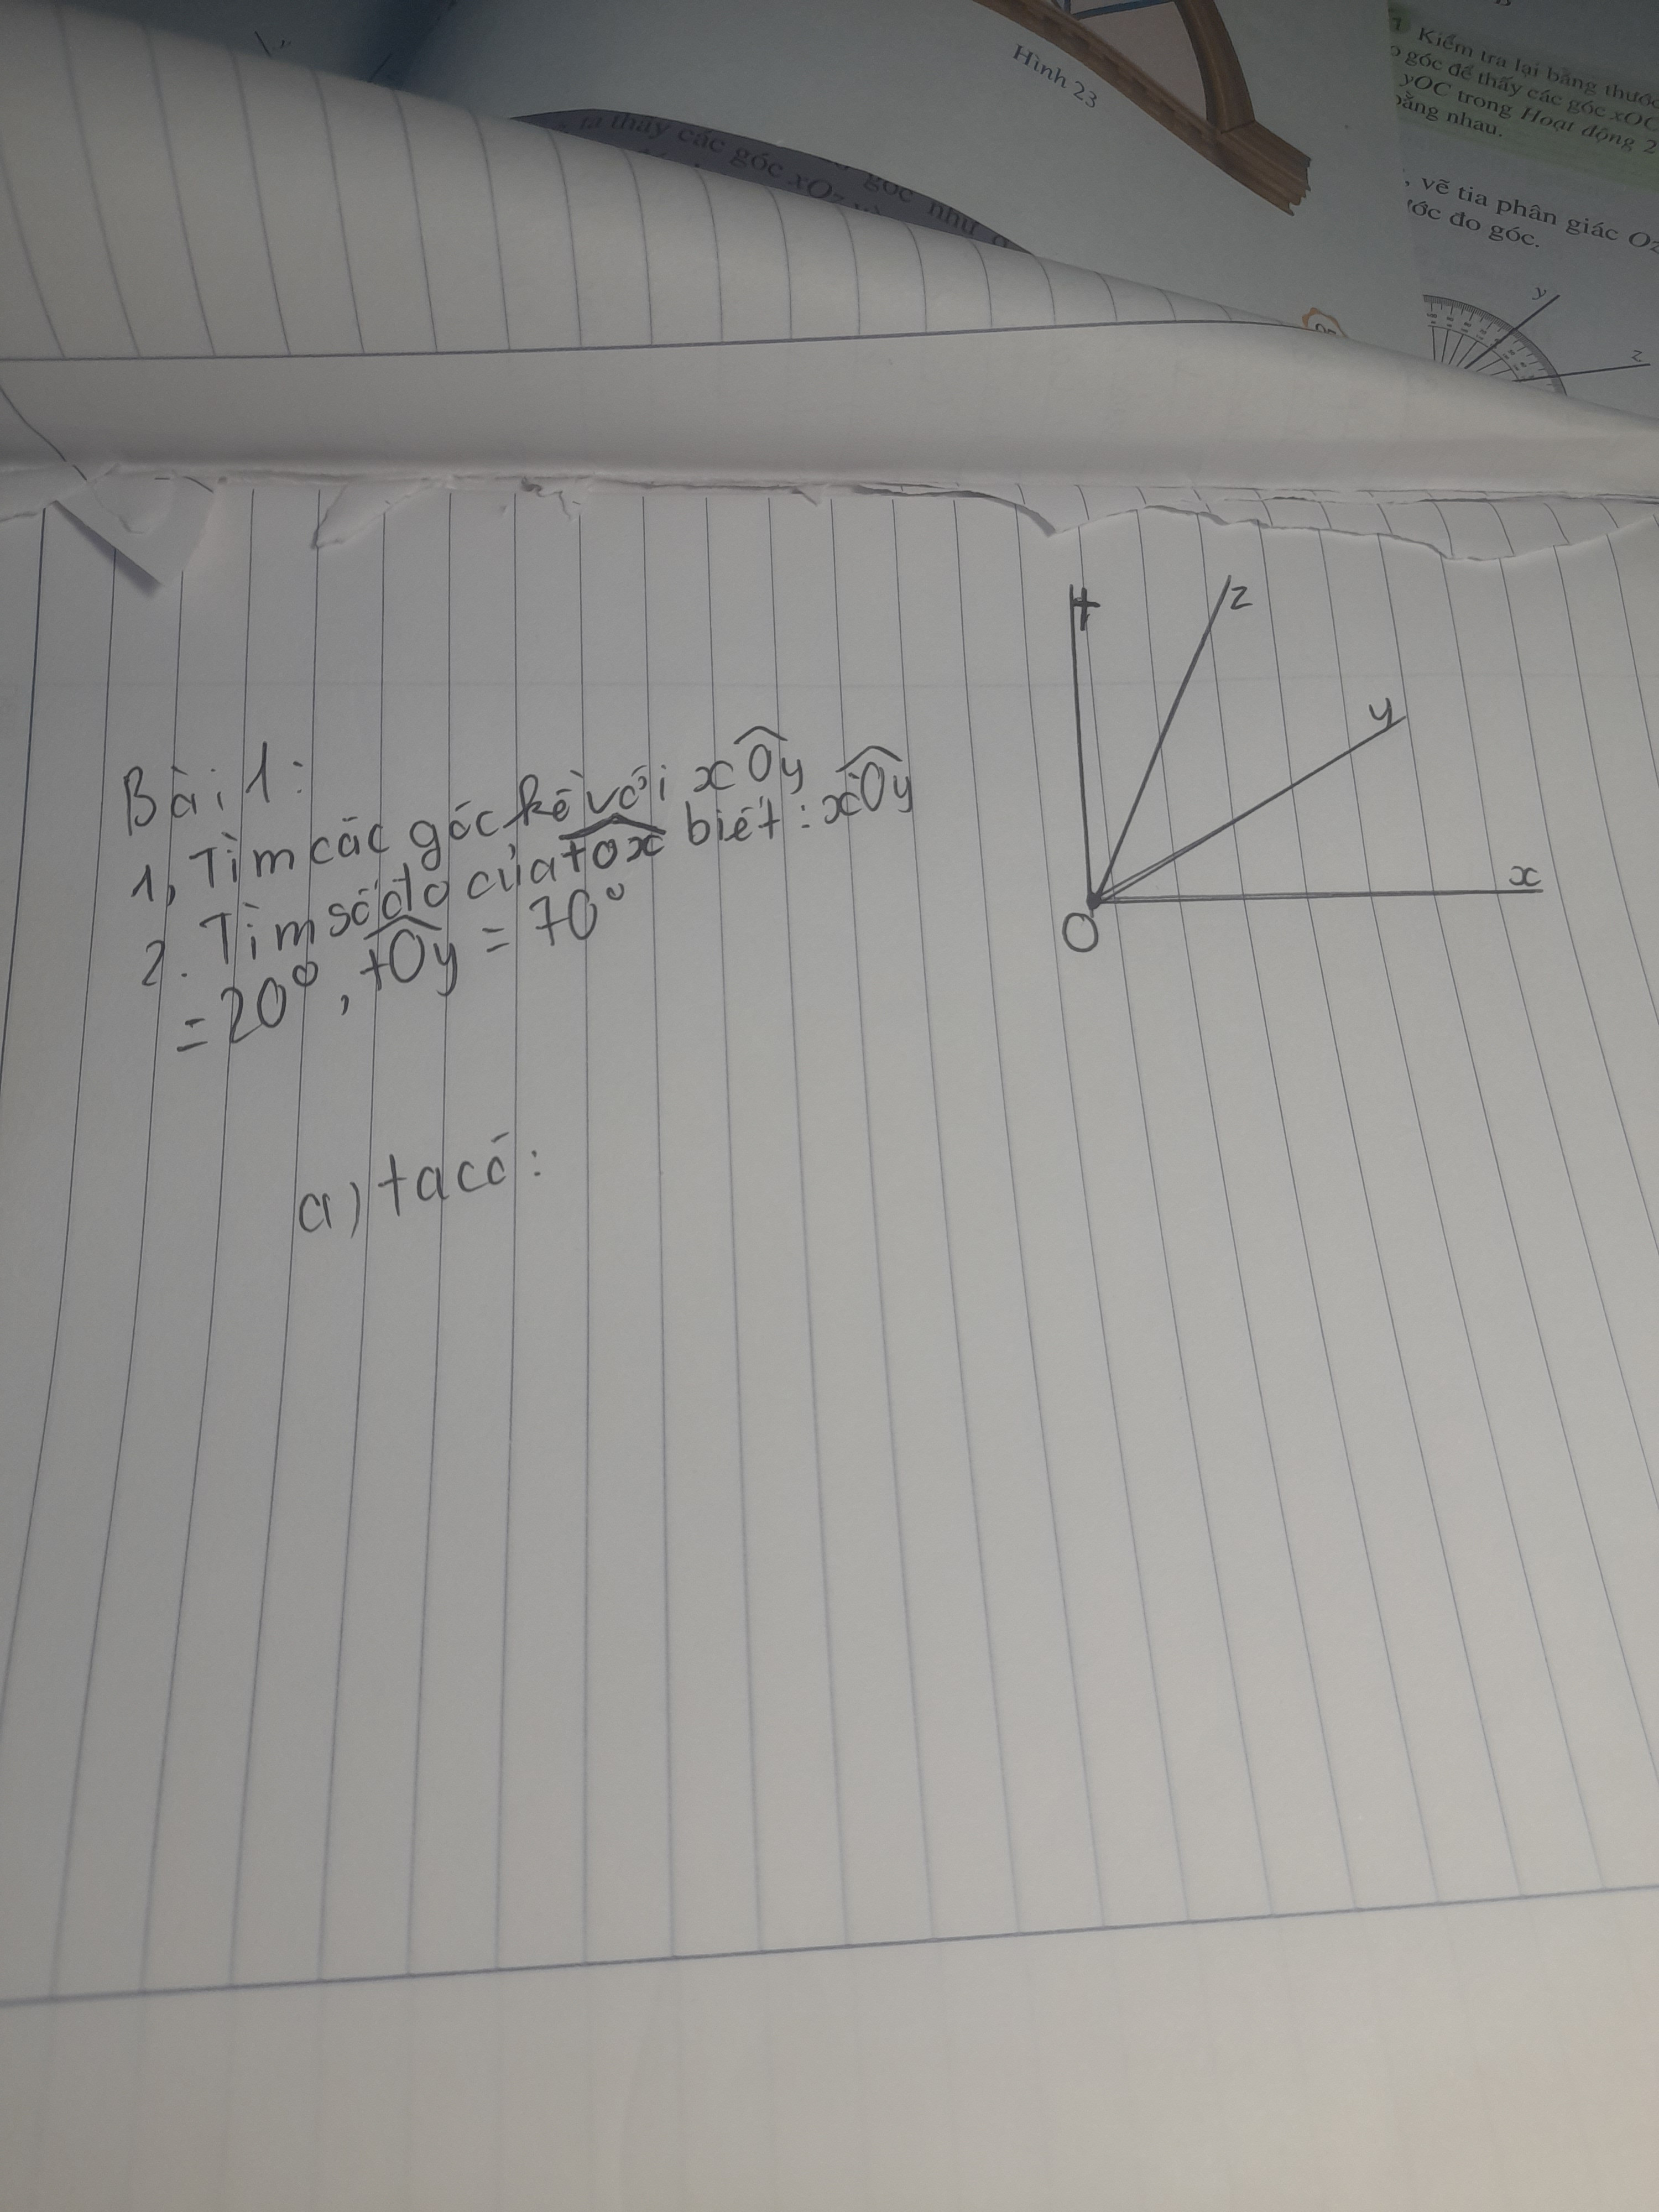 Hình 23
1 Kiểm tra lại bằng thước
góc để thấy các góc xOC
yOC trong Hoạt động 2
bằng nhau.
, vẽ tia phân giác Oz
ước đo góc.
y
z
thấy các góc xOz
góc như
t
z
y
x
O
Bài 1:
1, Tìm các góc kề với xOy
2. Tìm số đo của tOx biết: xOy
= 20°, tOy = 70°
a) ta có: